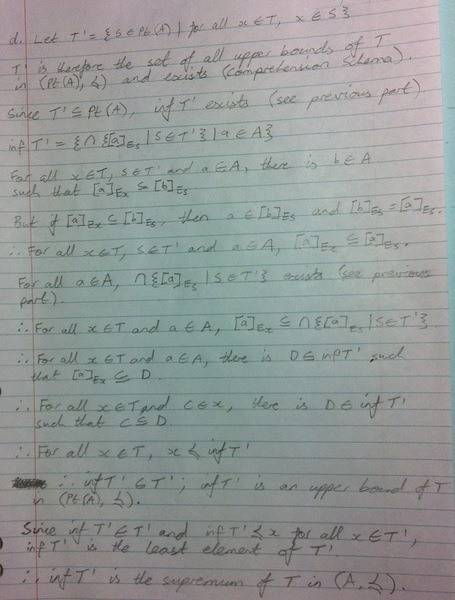 d. Let T' = {S ∈ Pt(A) | for all x ∈ T, x ≼ S}
T' is therefore the set of all upper bounds of T
in (Pt(A), ≼) and exists (comprehension schema).
Since T' ⊆ Pt(A), inf T' exists (see previous part).
inf T' = {∩{[a]Es | S ∈ T'} | a ∈ A}
For all x ∈ T, S ∈ T' and a ∈ A, there is b ∈ A
such that [a]Ex ⊆ [b]Es
But if [a]Ex ⊆ [b]Es, then a ∈ [b]Es and [b]Es = [a]Es.
∴ For all x ∈ T, S ∈ T' and a ∈ A, [a]Ex ⊆ [a]Es.
For all a ∈ A, ∩{[a]Es | S ∈ T'} exists (see previous
part).
∴ For all x ∈ T and a ∈ A, [a]Ex ⊆ ∩{[a]Es | S ∈ T'}
∴ For all x ∈ T and a ∈ A, there is D ∈ inf T' such
that [a]Ex ⊆ D.
∴ For all x ∈ T and C ∈ x, there is D ∈ inf T'
such that C ⊆ D.
∴ For all x ∈ T, x ≼ inf T'
∴ inf T' ∈ T'; inf T' is an upper bound of T
in (Pt(A), ≼).
Since inf T' ∈ T' and inf T' ≼ x for all x ∈ T',
inf T' is the least element of T'
∴ inf T' is the supremum of T in (A, ≼).